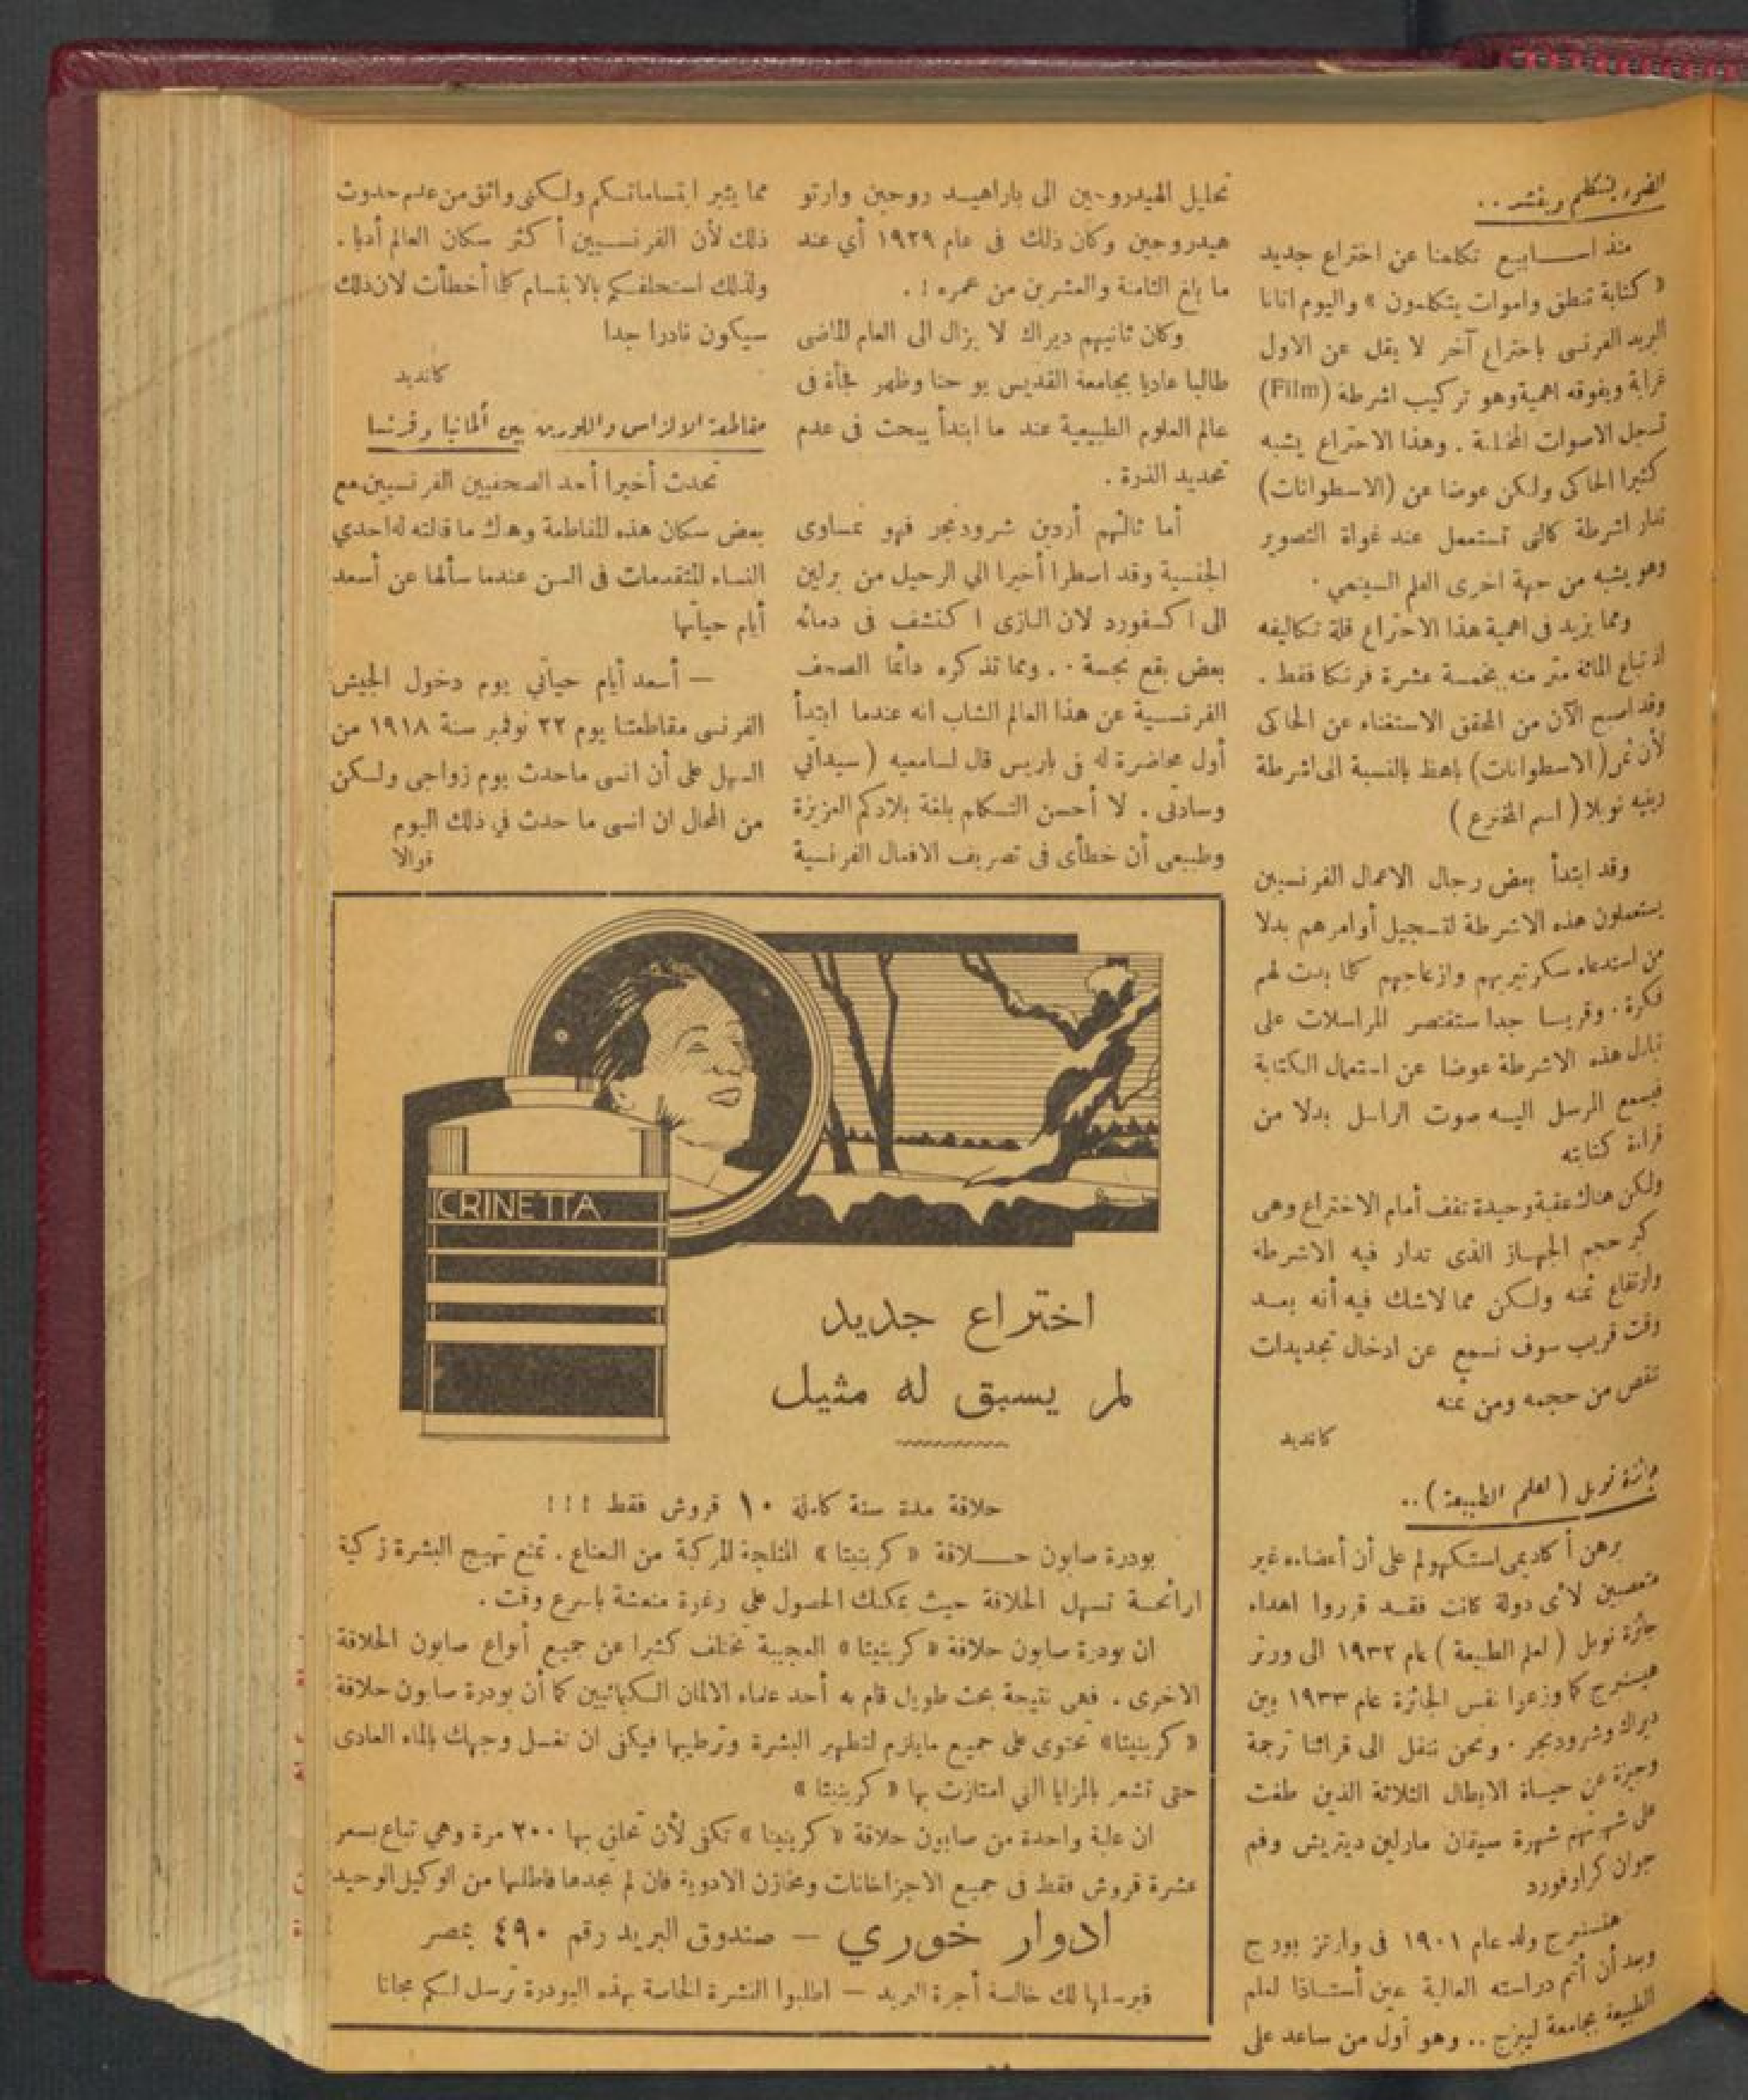 منذ اســابيع تكلمنا عن اختراع جديد
« كتابة تنطق واموات يتكلمون » واليوم اتانا
البريد الفرنسى باختراع آخر لا يقل عن الاول
غرابة ويفوقه اهمية وهو تركيب اشرطة (Film)
تسجل الاصوات المختلفة . وهذا الاختراع يشبه
كثيرا الحاكى ولكن عوضا عن (الاسطوانات)
تدار اشرطة كالتى تستعمل عند غواة التصوير
وهو يشبه من جهة اخرى الفلم السينمي .
ومما يزيد فى اهمية هذا الاختراع قلة تكاليفه
اذ تباع المائة متر منه بخمسة عشرة فرنكا فقط .
وقد اصبح الآن من المحقق الاستغناء عن الحاكى
لأن ثمن (الاسطوانات) باهظ بالنسبة الى اشرطة
رينيه نوبلا ( اسم المخترع )
وقد ابتدأ بعض رجال الاعمال الفرنسيين
يستعملون هذه الاشرطة لتسجيل أوامرهم بدلا
من استدعاء سكرتيريهم وازعاجهم كلما بدت لهم
فكرة . وقريبا جدا ستقتصر المراسلات على
تبادل هذه الاشرطة عوضا عن استعمال الكتابة
فيسمع المرسل اليه صوت الراسل بدلا من
قراءة كتابته
ولكن هناك عقبة وحيدة تقف أمام الاختراع وهى
كبر حجم الجهاز الذى تدار فيه الاشرطة
وارتفاع ثمنه ولكن مما لاشك فيه أنه بعد
وقت قريب سوف نسمع عن ادخال تجديدات
تنقص من حجمه ومن ثمنه
كانديد
جائزة نوبل ( لعلم الطبيعة ) ..
برهن أكاديمى استكهولم على أن أعضاءه غير
متعصبين لأى دولة كانت فقد قرروا اهداء
جائزة نوبل ( لعلم الطبيعة ) عام ١٩٣٢ الى ورنر
هيسنبرج كما وزعوا نفس الجائزة عام ١٩٣٣ بين
ديراك وشرودنجر . ونحن ننقل الى قرائنا ترجمة
وجيزة عن حياة الابطال الثلاثة الذين طغت
على شهرتهم شهرة سيقان مارلين ديتريش وفم
جوان كراوفورد
هيسنبرج ولد عام ١٩٠١ فى وارتز بورج
وبعد أن أتم دراسته العالية عين أستاذا لعلم
الطبيعة بجامعة ليبزج .. وهو أول من ساعد على
تحليل الهيدروجين الى باراهيدروجين وارتو
هيدروجين وكان ذلك فى عام ١٩٢٩ أي عند
ما بلغ الثامنة والعشرين من عمره ! .
وكان ثانيهم ديراك لا يزال الى العام الماضى
طالبا عاديا بجامعة القديس يوحنا وظهر فجأة فى
عالم العلوم الطبيعية عند ما ابتدأ يبحث فى عدم
تحديد الذرة .
أما ثالثهم أردين شرودنجر فهو نمساوى
الجنسية وقد اضطرا أخيرا الي الرحيل من برلين
الى اكسفورد لان النازى اكتشف فى دمائه
بعض بقع نجسة . . ومما تذكره دائما الصحف
الفرنسية عن هذا العالم الشاب انه عندما ابتدأ
أول محاضرة له فى باريس قال لسامعيه ( سيداتي
وسادتى . لا أحسن التكلم بلغة بلادكم العزيزة
وطبيعى أن خطأى فى تصريف الافعال الفرنسية
مما يثير ابتساماتكم ولكنى واثق من عدم حدوث
ذلك لأن الفرنسيين أكثر سكان العالم أدبا .
ولذلك استحلفكم بالابتسام كلما أخطأت لان ذلك
سيكون نادرا جدا
كانديد
مقاطعة الالزاس واللورين بين ألمانيا وفرنسا
تحدث أخيرا أحد الصحفيين الفرنسيين مع
بعض سكان هذه المقاطعة وهاك ما قالته له احدي
النساء المتقدمات فى السن عندما سألها عن أسعد
أيام حياتها
— أسعد أيام حياتي يوم دخول الجيش
الفرنسى مقاطعتنا يوم ٢٢ نوفمبر سنة ١٩١٨ من
السهل على أن انسى ماحدث يوم زواجى ولكن
من المحال ان انسى ما حدث في ذلك اليوم
فوالا
CRINETTA
اختراع جديد
لم يسبق له مثيل
حلاقة مدة سنة كاملة ١٠ قروش فقط !!!
بودرة صابون حــلاقة « كرينيتا » المثلجة المركبة من النعناع . تمنع تهيج البشرة زكية
الرائحة تسهل الحلاقة حيث يمكنك الحصول على رغوة منعشة باسرع وقت .
ان بودرة صابون حلاقة « كرينيتا » العجيبة تختلف كثيرا عن جميع أنواع صابون الحلاقة
الاخرى . فهى نتيجة بحث طويل قام به أحد علماء الالمان الكيمائيين كما أن بودرة صابون حلاقة
« كرينيتا » تحتوى على جميع مايلزم لتطهير البشرة وترطيبها فيكفى ان تغسل وجهك بالماء العادى
حتى تشعر بالمزايا التي امتازت بها « كرينيتا »
ان علبة واحدة من صابون حلاقة « كرينيتا » تكفى لأن تحلق بها ٢٠٠ مرة وهي تباع بسعر
عشرة قروش فقط فى جميع الاجزاخانات ومخازن الادوية فان لم تجدها فاطلبها من الوكيل الوحيد
ادوار خوري — صندوق البريد رقم ٤٩٠ بمصر
فيرسلها لك خالصة أجرة البريد — اطلبوا النشرة الخاصة بهذه البودرة ترسل لكم مجانا